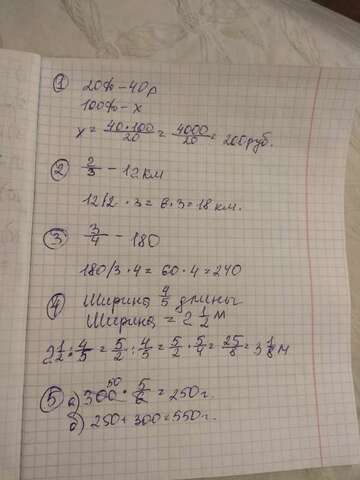 1 20% - 40р
100% - х
х = 40·100/20 = 4000/20 = 200руб.
2 2/3 - 12км
12/2 · 3 = 6·3 = 18 км.
3 3/4 - 180
180/3 · 4 = 60·4 = 240
4 Ширина 4/5 длины
Ширина = 2 1/2 м
2 1/2 : 4/5 = 5/2 : 4/5 = 5/2 · 5/4 = 25/8 = 3 1/8 м
5 а) 300 50 · 5/6 = 250г.
б) 250+300=550г.